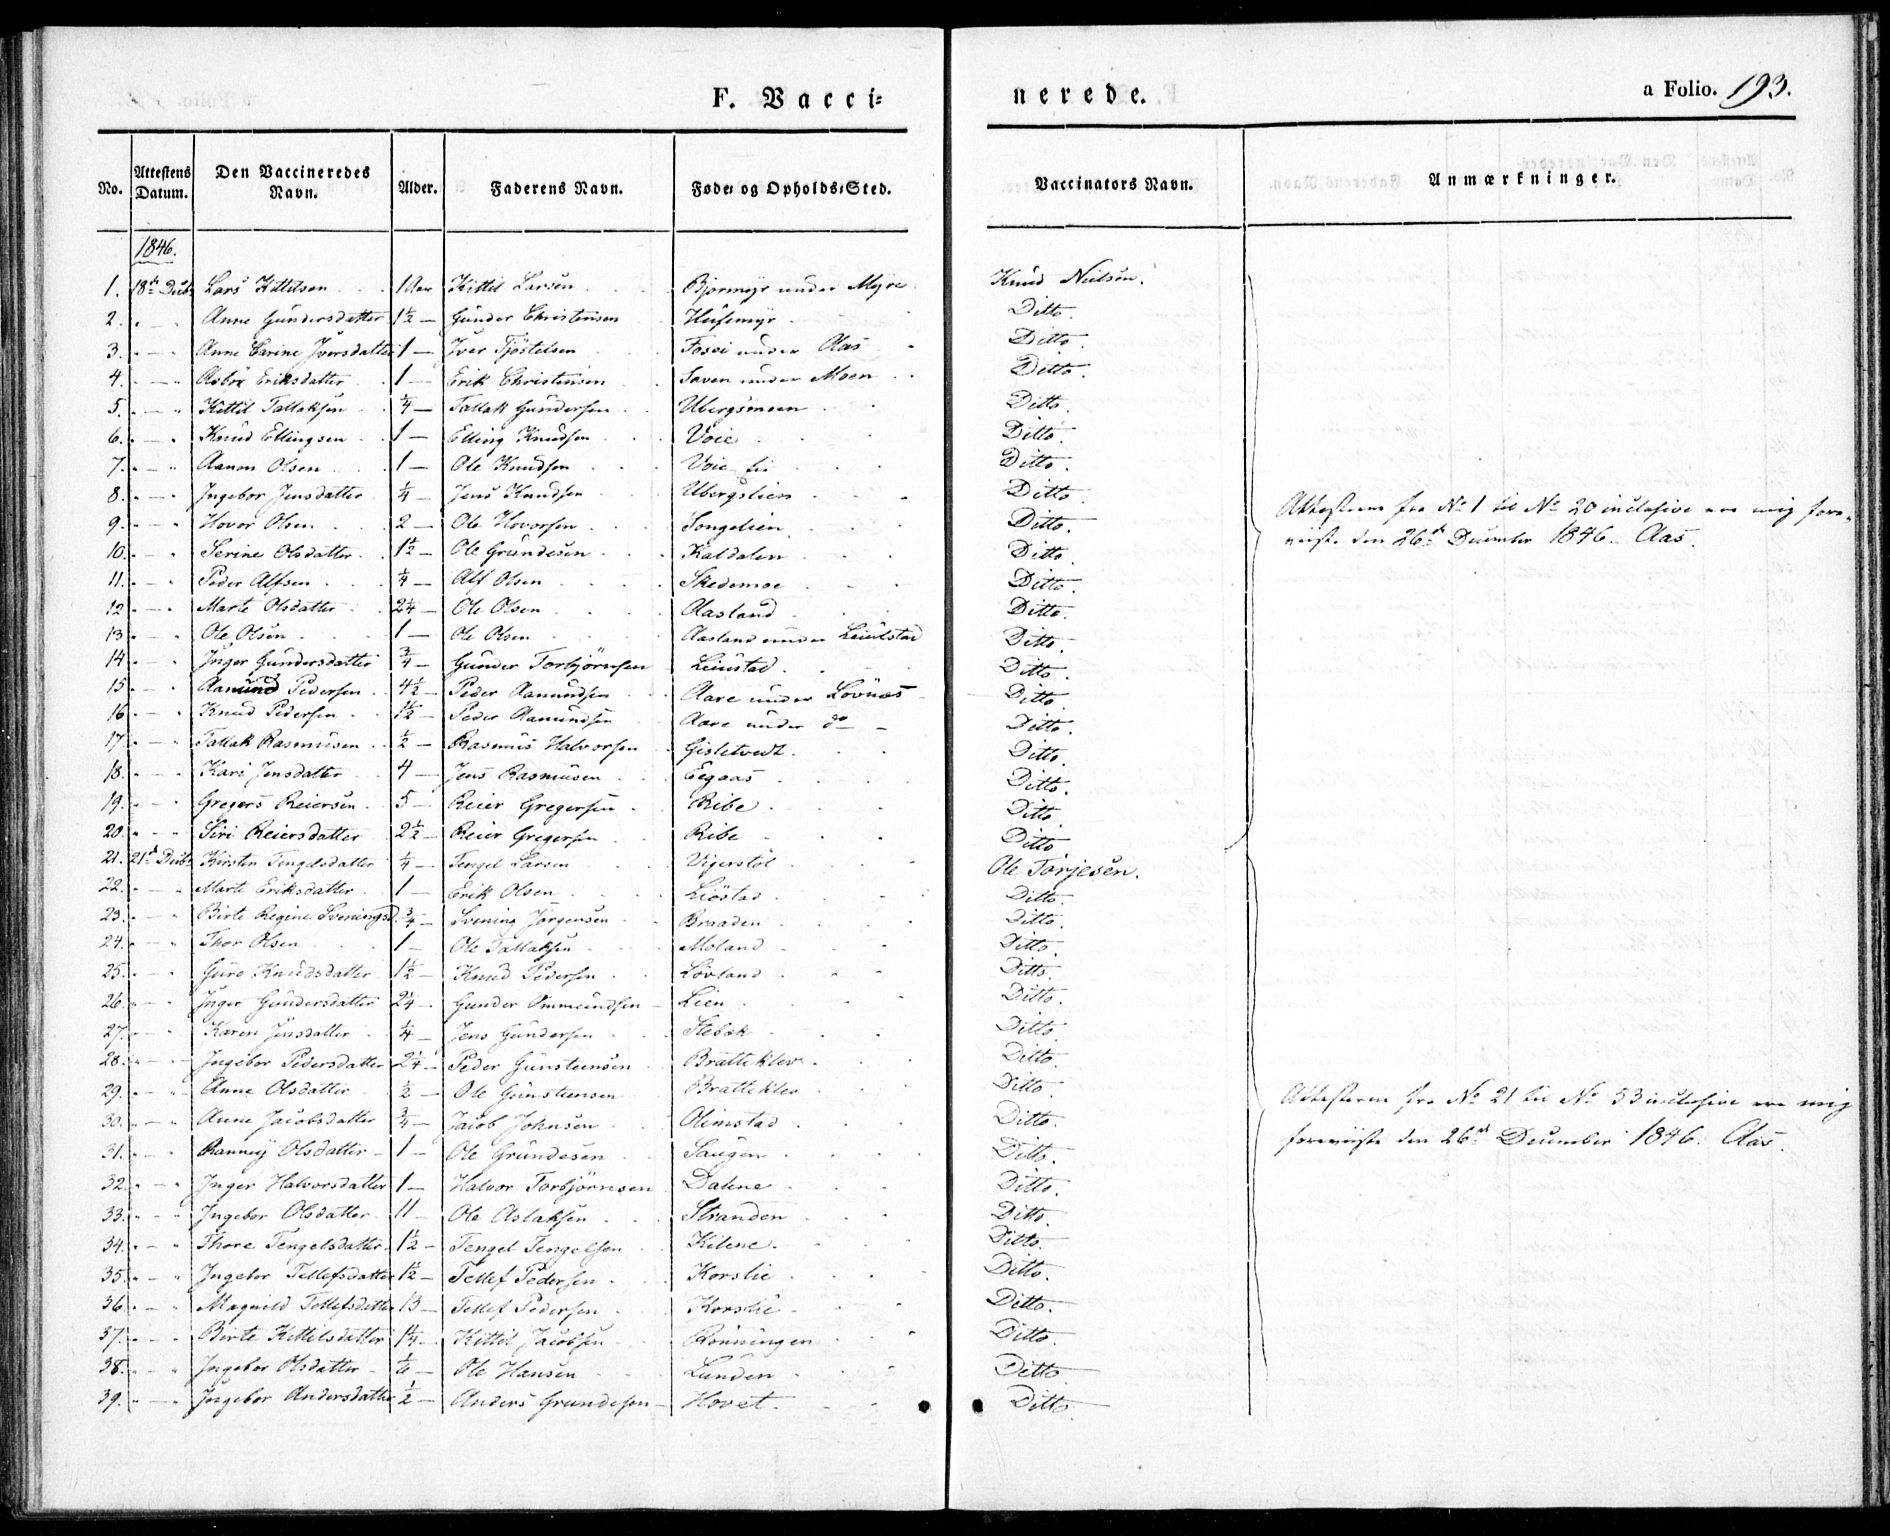 F. Vacci= nerede. a Folio. 193.
No. Attestens Datum. Den Vaccineredes Navn. Alder. Faderens Navn. Føde= og Opholds=Sted. Vaccinators Navn. Anmærkninger.
1846.
1. 18de Decbr Lars Kittelsen 1 Aar Kittil Larsen Bjormyr under Myre Knud Nielsen.
2. " — " Anne Gundersdatter 1½ — Gunder Christensen Husemyr Ditto.
3. " — " Anne Carine Iversdatter 1 — Iver Tjöstelsen Fossi under Aas Ditto.
4. " — " Asbör Eriksdatter 1 — Erik Christensen Saven under Moen Ditto.
5. " — " Kittil Tallaksen ¼ — Tallak Gundersen Ubergsmoen Ditto.
6. " — " Knud Ellingsen 1 — Elling Knudsen Voie Ditto.
7. " — " Aanon Olsen 1 — Ole Knudsen Voie Ditto.
8. " — " Ingebor Jensdatter ¼ Jens Knudsen Ubergslien Ditto.
9. " — " Hovor Olsen 2 — Ole Hovorsen Songelien Ditto.
10. " — " Serine Olsdatter 1½ — Ole Grundesen Kaldalen Ditto.
11. " — " Peder Alfsen ¼ — Alf Olsen Skedemoe Ditto.
12 " — " Marte Olsdatter 2¼ — Ole Olsen Aasland Ditto.
13 " — " Ole Olsen 1 — Ole Olsen Aasland under Leiulstad Ditto.
14 " — " Inger Gundersdatter ¾ — Gunder Torbjörnsen Leiustad Ditto.
15 " — " Aamund Pedersen 4½ — Peder Aamundsen Aare under Lovnæs Ditto.
16 " — " Knud Pedersen 1½ — Peder Aamundsen Aare under do — Ditto.
17. " — " Tallak Rasmusen ½ — Rasmus Halvorsen Gisletvedt Ditto.
18. " — " Kari Jensdatter 4 — Jens Rasmusen Eegaas Ditto.
19. " — " Gregers Reiersen 5 — Reier Gregersen Ribe Ditto.
20. " — " Siri Reiersdatter 2½ — Reier Gregersen Ribe Ditto
Attesterne fra No 1 til No 20 inclusive ere mig fore=
viist. den 26de December 1846. Aas.
21. 21de Decbr Kirsten Tengelsdatter ¼ — Tengel Larsen Vigerstöl Ole Tarjesen.
22. " — " Marte Eriksdatter 1 — Erik Olsen Liöstad Ditto.
23. " — " Birte Regine Sveningsd. ¾ — Svening Jörgensen Braaden Ditto.
24. " — " Thor Olsen 1 — Ole Tallaksen Moland Ditto.
25. " — " Guro Knudsdatter 1½ — Knud Pedersen Lövland Ditto.
26. " — " Inger Gundersdatter 2¼ — Gunder Ommundsen Lien Ditto.
27. " — " Karen Jensdatter ¼ — Jens Gundersen Stebek Ditto.
28. " — " Ingebor Pedersdatter 2¼ — Peder Gunsteensen Bratteklev Ditto.
29. " — " Anne Olsdatter ½ — Ole Gunsteensen Bratteklev Ditto.
30. " — " Anne Jacobsdatter ¾ — Jacob Johnsen Olimstad Ditto.
31. " — " Ranneij Olsdatter 1 — Ole Grundesen Saugen Ditto.
32. " — " Inger Halvorsdatter 1 — Halvor Torbjörnsen Dalene Ditto.
33. " — " Ingebor Olsdatter 11 — Ole Aslaksen Stranden Ditto.
34. " — " Thore Tengelsdatter 1½ — Tengel Tengelsen Kilene. Ditto.
35. " — " Ingebor Tellefsdatter 1½ — Tellef Pedersen Korslie Ditto.
36. " — " Magnild Tellefsdatter 13 — Tellef Pedersen Korslie Ditto.
37. " — " Birte Kittelsdatter 1¼ — Kittil Jacobsen Rönningen Ditto.
38. " — " Ingebor Olsdatter — Ole Hansen Lunden Ditto
39. " — " Ingebor Andersdatter ½ — Anders Grundesen Hovet. Ditto.
Attesterne fra No 21 til No 53 inclusive ere mig
foreviiste den 26de December 1846. Aas.